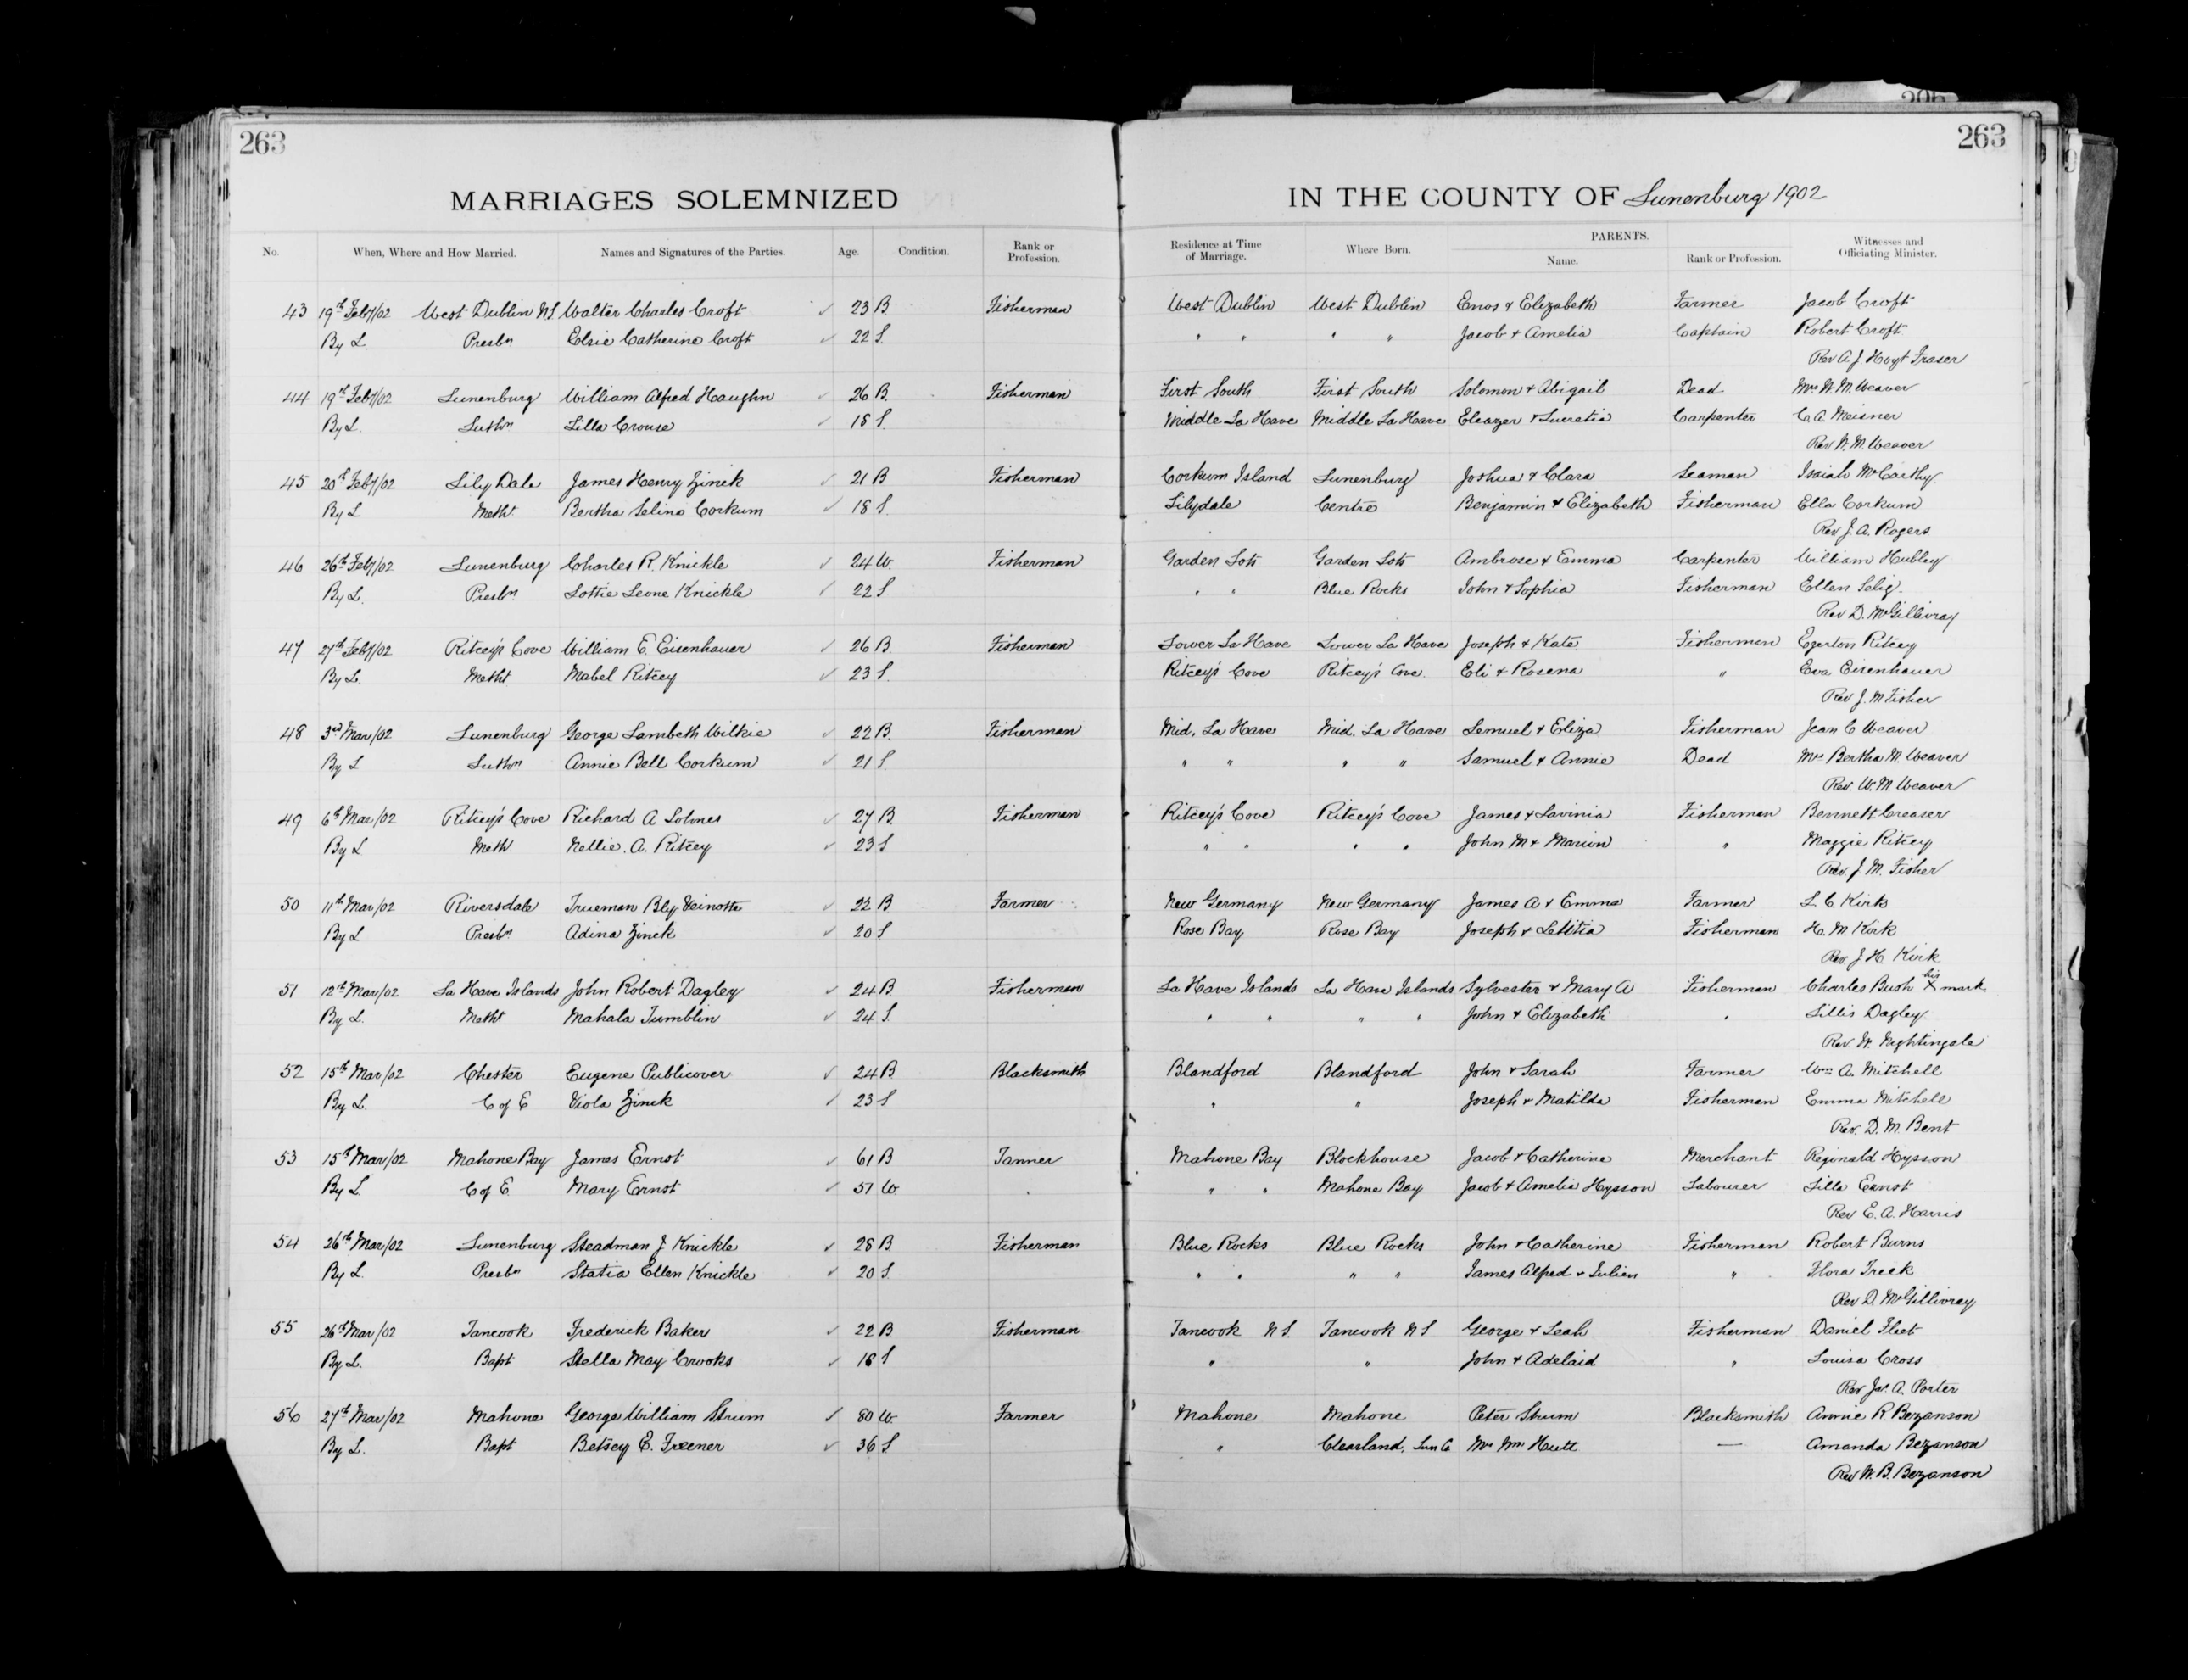 263
263
MARRIAGES SOLEMNIZED IN THE COUNTY OF Lunenburg 1902
No. When, Where and How Married. Names and Signatures of the Parties. Age. Condition. Rank or Profession. Residence at Time of Marriage. Where Born. PARENTS. Name. Rank or Profession. Witnesses and Officiating Minister.
43 19th Feby/02 West Dublin NS Walter Charles Croft 23 B. Fisherman West Dublin West Dublin Enos & Elizabeth Farmer Jacob Croft
By L. Presbn Elsie Catherine Croft 22 S. " " " " Jacob & Amelia Captain Robert Croft
Rev A. J Hoyt Fraser
44 19th Feby/02 Lunenburg William Alfred Haughn 26 B. Fisherman First South First South Solomon & Abigail Dead Mrs W. M. Weaver
By L. Luthn Lilla Crouse 18 S. Middle La Have Middle La Have Eleazer & Lucretia Carpenter C. A. Meisner
Rev W. M. Weaver
45 20th Feby/02 Lily Dale James Henry Zinck 21 B Fisherman Corkum Island Lunenburg Joshua & Clara Seaman Isaiah McCarthy
By L Metht Bertha Selina Corkum 18 S. Lilydale Centre Benjamin & Elizabeth Fisherman Ella Corkum
Rev J. A. Rogers
46 26th Feby/02 Lunenburg Charles R. Knickle 24 W. Fisherman Garden Lots Garden Lots Ambrose & Emma Carpenter William Hubley
By L. Presbn Lottie Leone Knickle 22 S " " Blue Rocks John & Sophia Fisherman Ellen Selig
Rev D. McGillivray
47 27th Feby/02 Ritcey's Cove William E. Eisenhauer 26 B. Fisherman Lower La Have Lower La Have Joseph & Kate Fisherman Egerton Ritcey
By L. Metht Mabel Ritcey 23 S. Ritcey's Cove Ritcey's Cove. Eli & Rosena " Eva Eisenhauer
Rev J. M Fisher
48 3rd Mar/02 Lunenburg George Lambeth Wilkie 22 B. Fisherman Mid. La Have Mid. La Have Lemuel & Eliza Fisherman Jean C Weaver
By L Luthn Annie Bell Corkum 21 S. " " " " Samuel & Annie Dead Mrs Bertha M. Weaver
Rev. W. M. Weaver
49 6th Mar/02 Ritcey's Cove Richard A Lohnes 27 B. Fisherman Ritcey's Cove Ritcey's Cove James & Lavinia Fisherman Bennett Creaser
By L Metht Nellie. A. Ritcey 23 S " " " " John M & Marion " Maggie Ritcey
Rev. J. M. Fisher
50 11th Mar/02 Riversdale Trueman Bly Veinotte 22 B. Farmer New Germany New Germany James A & Emma Farmer L. C. Kirk
By L Presbn Adina Zinck 20 S Rose Bay Rose Bay Joseph & Letitia Fisherman H. M. Kirk
Rev. J H. Kirk
51 12th Mar/02 La Have Islands John Robert Dagley 24 B. Fisherman La Have Islands La Have Islands Sylvester & Mary A Fisherman Charles Bush his X mark
By L. Metht Mahala Tumblin 24 S. " " " " John & Elizabeth " Lillis Dagley
Rev. W. Nightingale
52 15th Mar/02 Chester Eugene Publicover 24 B Blacksmith Blandford Blandford John & Sarah Farmer Wm A. Mitchell
By L. C of E Viola Zinck 23 S " " Joseph & Matilda Fisherman Emma Mitchell
Rev. D. M. Bent
53 15th Mar/02 Mahone Bay James Ernst 61 B Tanner Mahone Bay Blockhouse Jacob & Catherine Merchant Reginald Hysson
By L. C of E. Mary Ernst 57 W. " " Mahone Bay Jacob & Amelia Hysson Labourer Lilla Ernst
Rev E. A. Harris
54 26th Mar/02 Lunenburg Steadman J Knickle 28 B Fisherman Blue Rocks Blue Rocks John & Catherine Fisherman Robert Burns
By L. Presbn Statia Ellen Knickle 20 S. " " " " James Alfred & Julien " Flora Treek
Rev D. McGillivray
55 26th Mar/02 Tancook Frederick Baker 22 B Fisherman Tancook N S. Tancook N S George & Leah Fisherman Daniel Fleet
By L. Bapt Stella May Crooks 18 S " " John & Adelaid " Louisa Cross
Rev Jas. A. Porter
56 27th Mar/02 Mahone George William Strum 80 W. Farmer Mahone Mahone Peter Strum Blacksmith Annie R. Bezanson
By L. Bapt Betsey E. Freener 36 S " Clearland, Lun Co Mrs Wm Hutt — Amanda Bezanson
Rev W. B. Bezanson